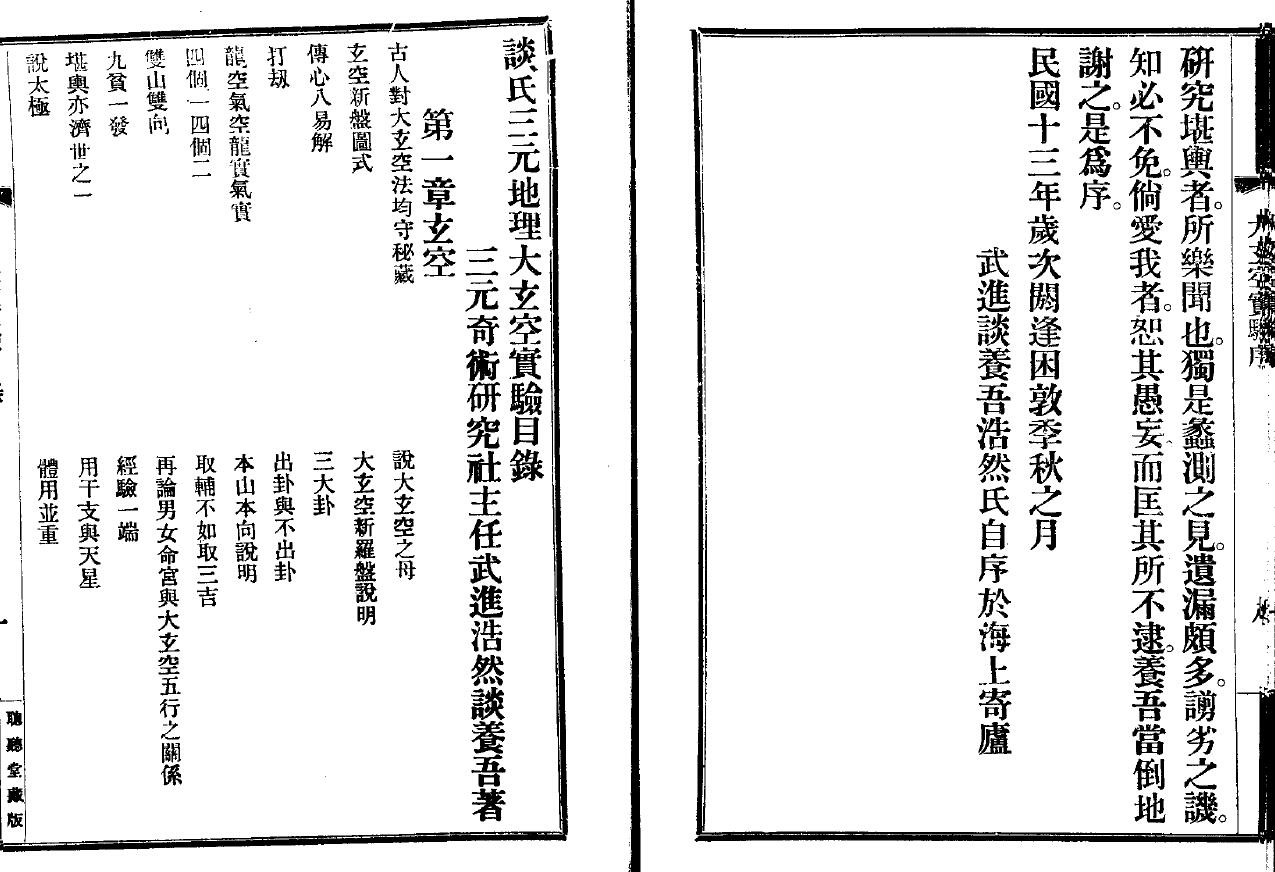 大玄空實驗序
研究堪輿者。所樂聞也。獨是蠡測之見。遺漏頗多。謭劣之譏。
知必不免。倘愛我者。恕其愚妄而匡其所不逮。養吾當倒地
謝之。是爲序。
民國十三年歲次閼逢困敦季秋之月
武進談養吾浩然氏自序於海上寄廬
談氏三元地理大玄空實驗目錄
三元奇術研究社主任武進浩然談養吾著
第一章玄空
古人對大玄空法均守秘藏
說大玄空之母
玄空新盤圖式
大玄空新羅盤說明
傳心八易解
三大卦
打刼
出卦與不出卦
龍空氣空龍實氣實
本山本向說明
四個一四個二
取輔不如取三吉
雙山雙向
再論男女命宮與大玄空五行之關係
九貧一發
經驗一端
堪輿亦濟世之一
用干支與天星
說太極
體用並重
一
聽堂藏版